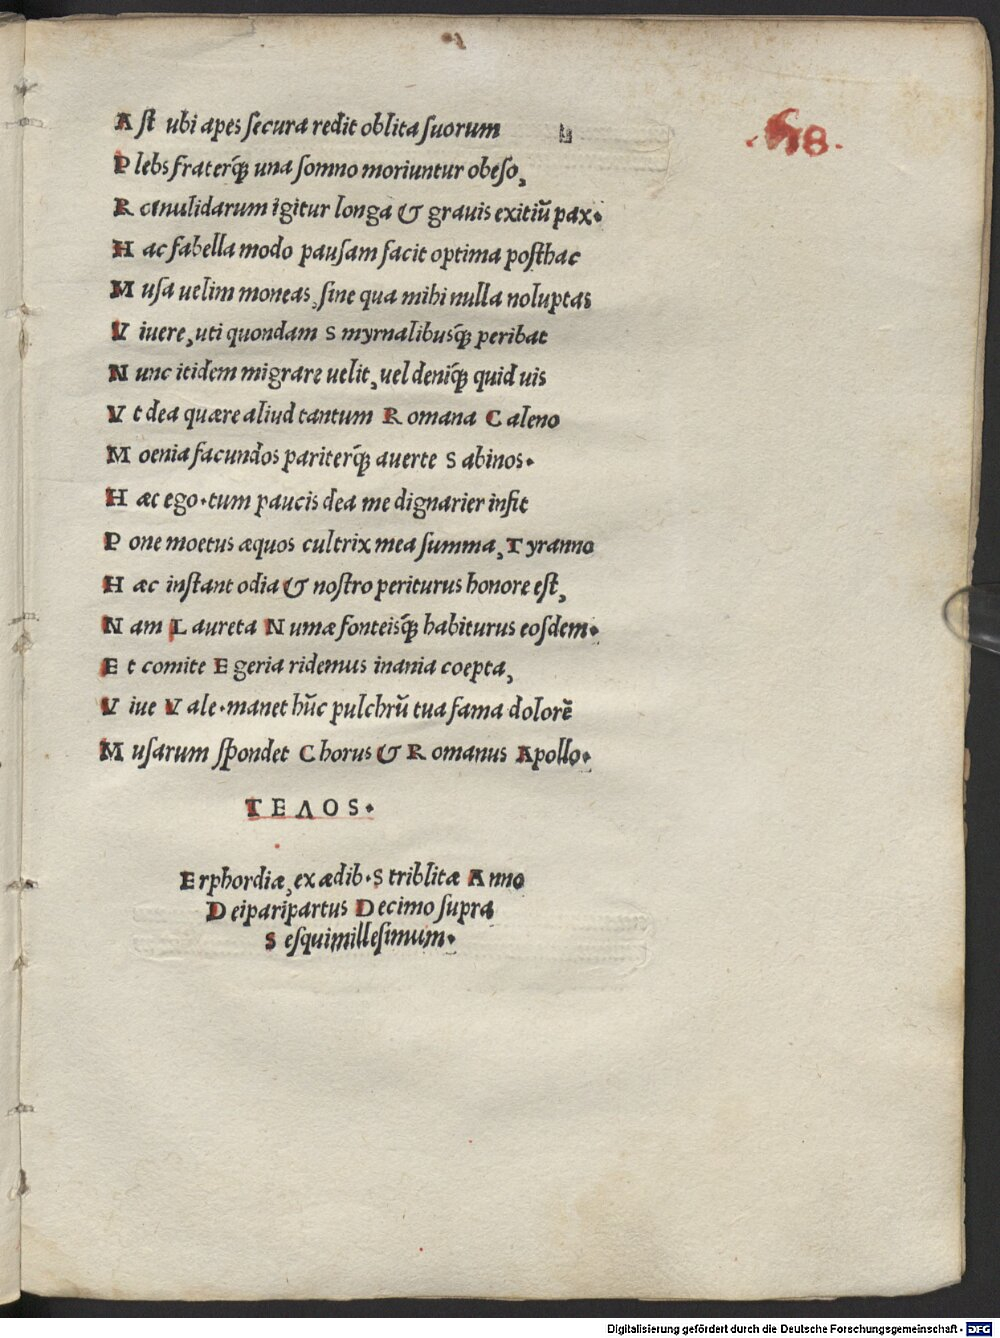 .68.
A ſt ubi apes ſecura redit oblita ſuorum
P lebs fraterq́; una ſomno moriuntur obeſo,
R omulidarum igitur longa & grauis exitiū pax.
H ac fabella modo pauſam facit optima poſthac
M uſa uelim moneas, ſine qua mihi nulla noluptas
V iuere, uti quondam S myrnalibusq́; peribat
N unc itidem migrare uelit, uel deniq́; quid uis
V t dea quære aliud tantum R omana C aleno
M oenia facundos pariterq́; auerte S abinos.
H æc ego. tum paucis dea me dignarier infit
P one moetus æquos cultrix mea ſumma, T yranno
H æc inſtant odia & noſtro periturus honore eſt,
N am L aureta N umæ fonteisq́; habiturus eoſdem.
E t comite E geria ridemus inania coepta,
V iue V ale. manet hūc pulchrū tua fama dolorē
M uſarum ſpondet C horus & R omanus A pollo.
ΤΕΛΟS.
E rphordiæ, ex ædib. S triblitæ A nno
D eiparipartus D ecimo ſupra
S eſquimilleſimum.
Digitalisierung gefördert durch die Deutsche Forschungsgemeinschaft - DFG